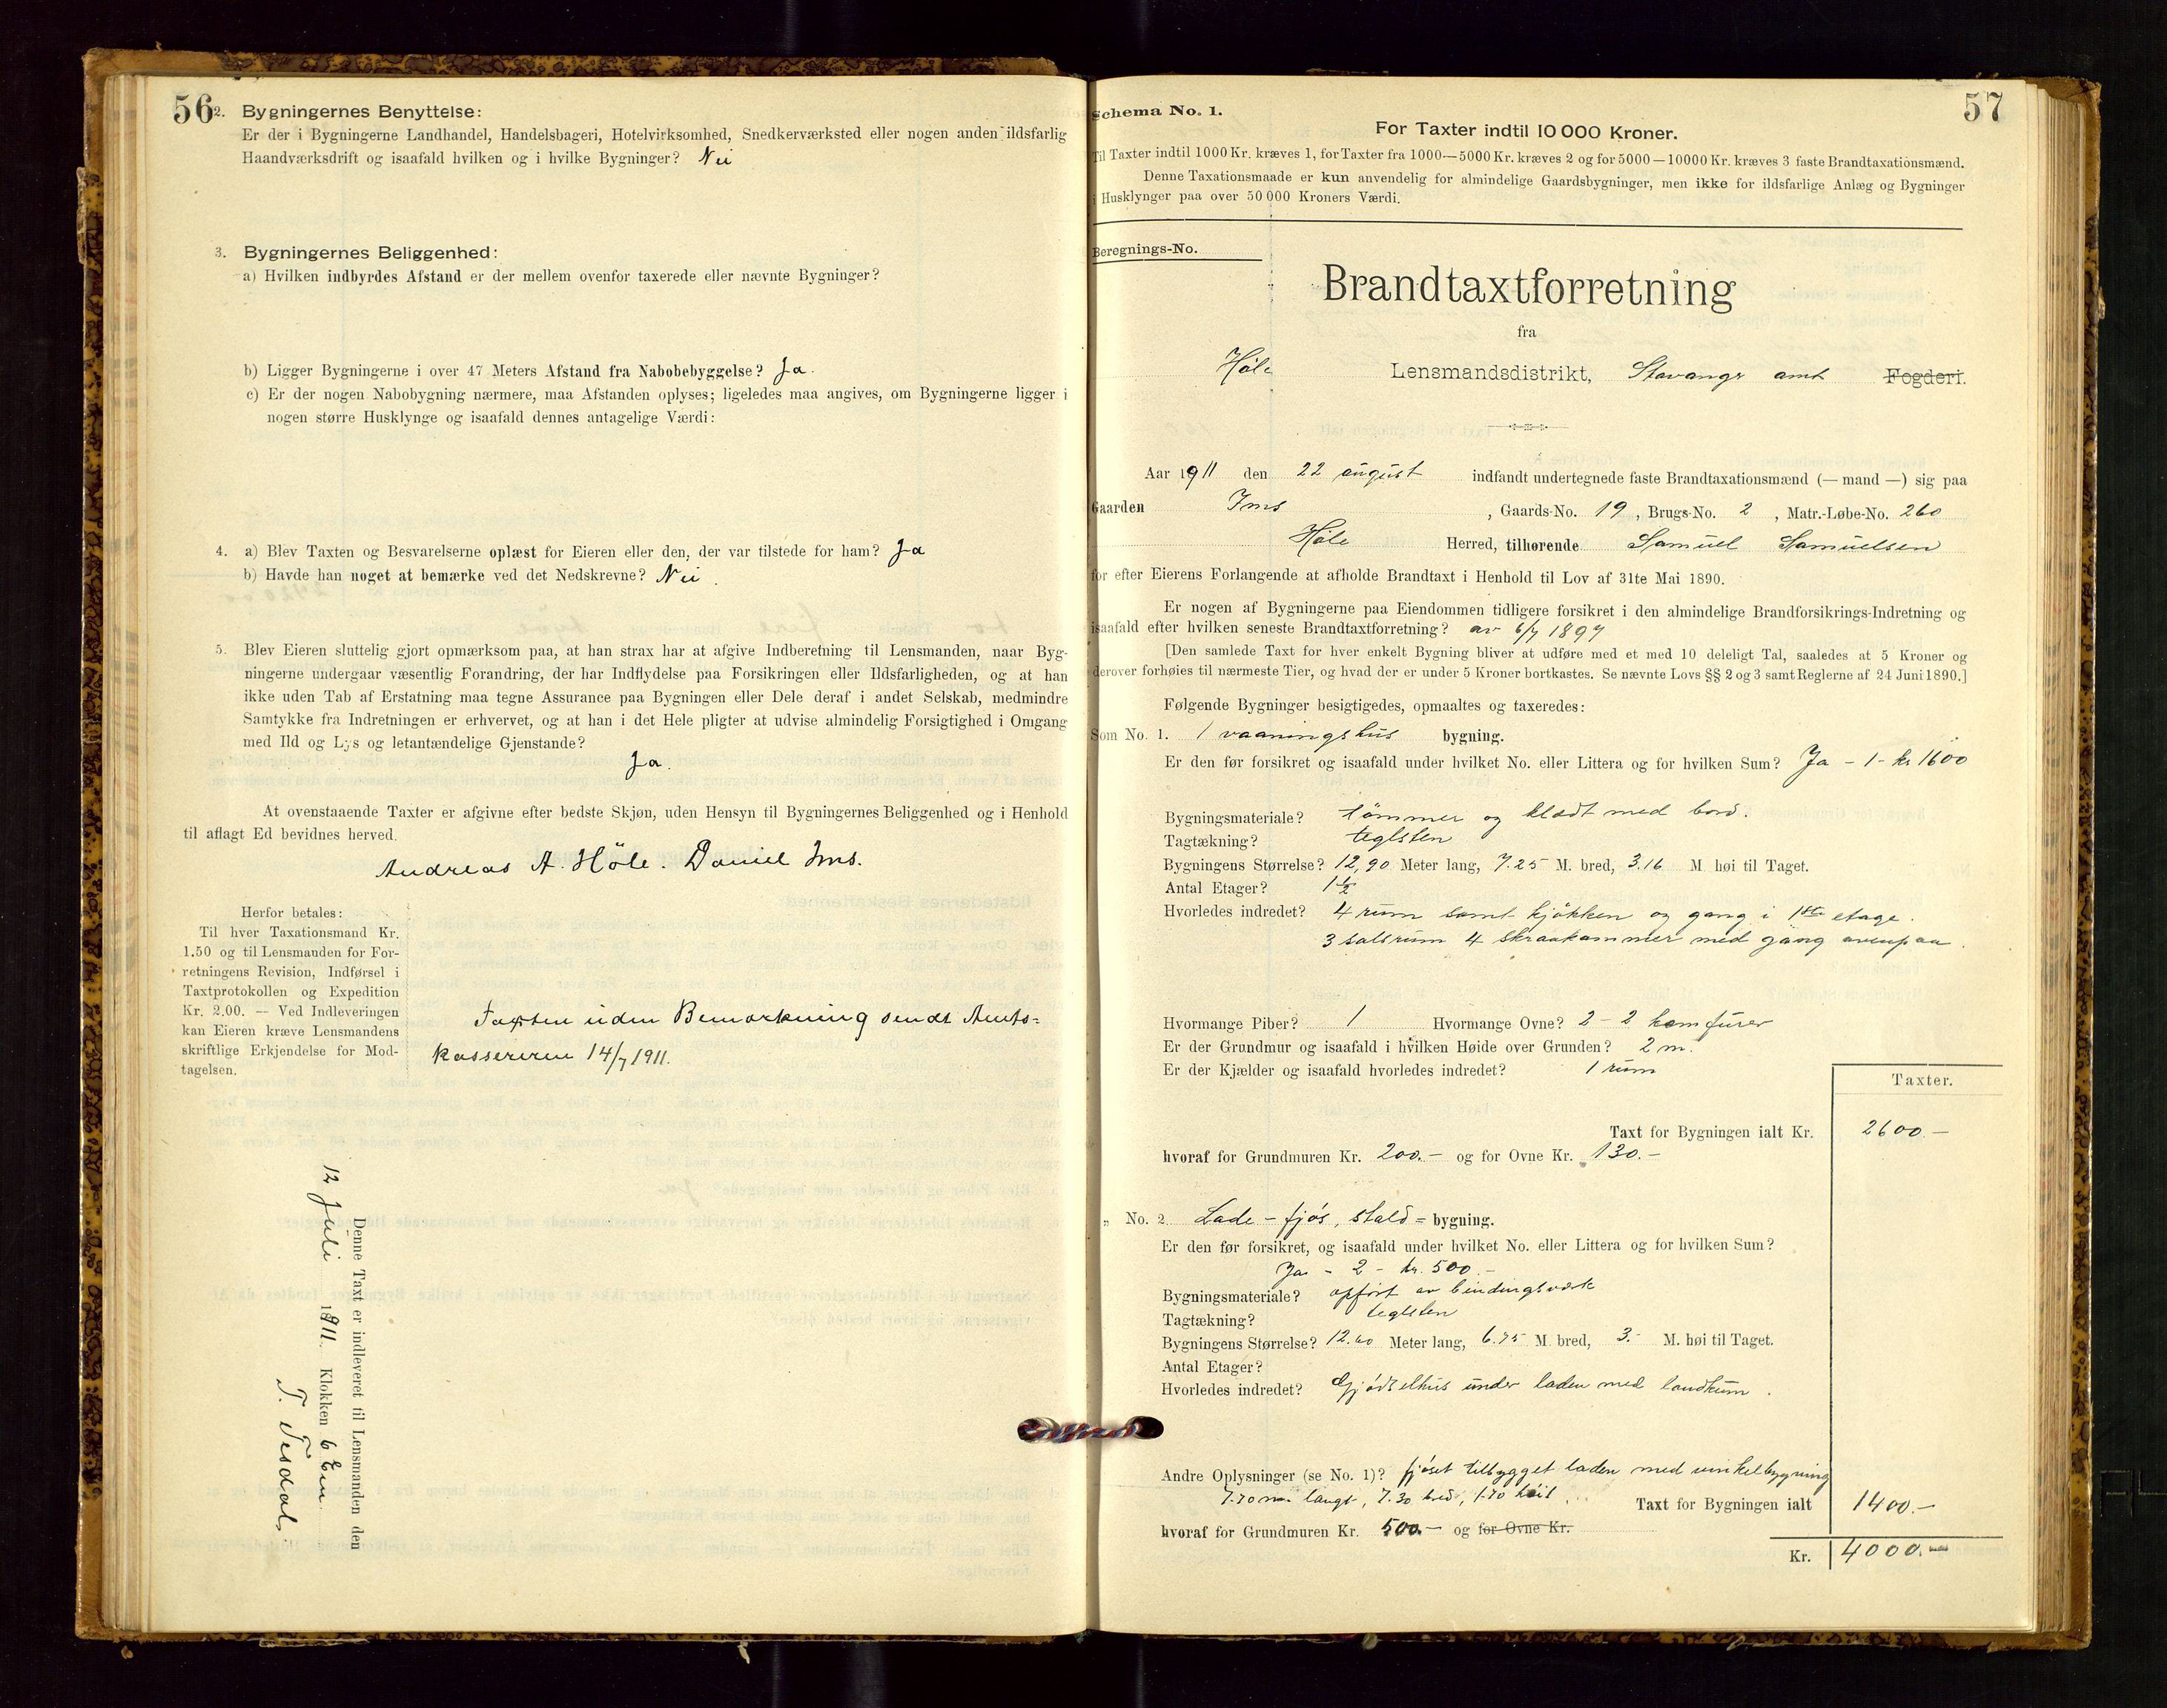 56
2. Bygningernes Benyttelse:
Er der i Bygningerne Landhandel, Handelsbageri, Hotelvirksomhed, Snedkerværksted eller nogen anden ildsfarlig
Haandværksdrift og isaafald hvilken og i hvilke Bygninger? Nei
3. Bygningernes Beliggenhed:
a) Hvilken indbyrdes Afstand er der mellem ovenfor taxerede eller nævnte Bygninger?
b) Ligger Bygningerne i over 47 Meters Afstand fra Nabobebyggelse? Ja.
c) Er der nogen Nabobygning nærmere, maa Afstanden oplyses; ligeledes maa angives, om Bygningerne ligger i
nogen større Husklynge og isaafald dennes antagelige Værdi:
4. a) Blev Taxten og Besvarelserne oplæst for Eieren eller den, der var tilstede for ham? Ja
b) Havde han noget at bemærke ved det Nedskrevne? Nei.
5. Blev Eieren sluttelig gjort opmærksom paa, at han strax har at afgive Indberetning til Lensmanden, naar Byg-
ningerne undergaar væsentlig Forandring, der har Indflydelse paa Forsikringen eller Ildsfarligheden, og at han
ikke uden Tab af Erstatning maa tegne Assurance paa Bygningen eller Dele deraf i andet Selskab, medmindre
Samtykke fra Indretningen er erhvervet, og at han i det Hele pligter at udvise almindelig Forsigtighed i Omgang
med Ild og Lys og letantændelige Gjenstande?
Ja.
At ovenstaaende Taxter er afgivne efter bedste Skjøn, uden Hensyn til Bygningernes Beliggenhed og i Henhold
til aflagt Ed bevidnes herved.
Andreas A. Höle. Daniel Ims.
Herfor betales:
Til hver Taxationsmand Kr.
1.50 og til Lensmanden for For-
retningens Revision, Indførsel i
Taxtprotokollen og Expedition
Kr. 2.00. — Ved Indleveringen
kan Eieren kræve Lensmandens
skriftlige Erkjendelse for Mod-
tagelsen.
Taxten uden Bemærkning sendt Amts=
kassereren 14/7 1911.
Denne Taxt er indleveret til Lensmanden den
12 Juli 1911. Klokken 6 Em.
T. Tesdal
57
Schema No. 1.
For Taxter indtil 10 000 Kroner.
Til Taxter indtil 1000 Kr. kræves 1, for Taxter fra 1000—5000 Kr. kræves 2 og for 5000—10000 Kr. kræves 3 faste Brandtaxationsmænd.
Denne Taxationsmaade er kun anvendelig for almindelige Gaardsbygninger, men ikke for ildsfarlige Anlæg og Bygninger
i Husklynger paa over 50 000 Kroners Værdi.
Beregnings-No.
Brandtaxtforretning
fra
Høle Lensmandsdistrikt, Stavanger amt Fogderi.
Aar 1911 den 22 august indfandt undertegnede faste Brandtaxationsmænd (— mand —) sig paa
Gaarden Ims, Gaards-No. 19, Brugs-No. 2, Matr.-Løbe-No. 260
Høle Herred, tilhørende Samuel Samuelsen
for efter Eierens Forlangende at afholde Brandtaxt i Henhold til Lov af 31te Mai 1890.
Er nogen af Bygningerne paa Eiendommen tidligere forsikret i den almindelige Brandforsikrings-Indretning og
isaafald efter hvilken seneste Brandtaxtforretning? av 6/7 1897
[Den samlede Taxt for hver enkelt Bygning bliver at udføre med et med 10 deleligt Tal, saaledes at 5 Kroner og
derover forhøies til nærmeste Tier, og hvad der er under 5 Kroner bortkastes. Se nævnte Lovs §§ 2 og 3 samt Reglerne af 24 Juni 1890.]
Følgende Bygninger besigtigedes, opmaaltes og taxeredes:
Som No. 1. 1 vaaningshus bygning.
Er den før forsikret og isaafald under hvilket No. eller Littera og for hvilken Sum? Ja - 1 - kr 1600
Bygningsmateriale? tömmer og klædt med bord.
Tagtækning? teglsten
Bygningens Størrelse? 12,90 Meter lang, 7.25 M. bred, 3.16 M. høi til Taget.
Antal Etager? 1 1/2
Hvorledes indredet? 4 rum samt kjökken og gang i 1ste etage.
3 salsrum 4 skraakammer med gang ovenpaa.
Hvormange Piber? 1 Hvormange Ovne? 2 - 2 komfurer
Er der Grundmur og isaafald i hvilken Høide over Grunden? 2 m.
Er der Kjælder og isaafald hvorledes indredet? 1 rum
Taxter.
Taxt for Bygningen ialt Kr. 2600.—
hvoraf for Grundmuren Kr. 200.— og for Ovne Kr. 130.—
„ No. 2. Lade - fjós, stald = bygning.
Er den før forsikret, og isaafald under hvilket No. eller Littera og for hvilken Sum?
Ja - 2 - kr. 500.-
Bygningsmateriale? opfört av bindingsværk
Tagtækning? teglsten
Bygningens Størrelse? 12.60 Meter lang, 6.75 M. bred, 3.- M. høi til Taget.
Antal Etager?
Hvorledes indredet? Gjödselhus under laden med landkum.
Andre Oplysninger (se No. 1)? fjöset tilbygget laden med vinkelbygning
7.70 m. langt, 7.30 bred, 1.70 höit Taxt for Bygningen ialt 1400.—
hvoraf for Grundmuren Kr. 500.— og for Ovne Kr.
Kr. 4000.—